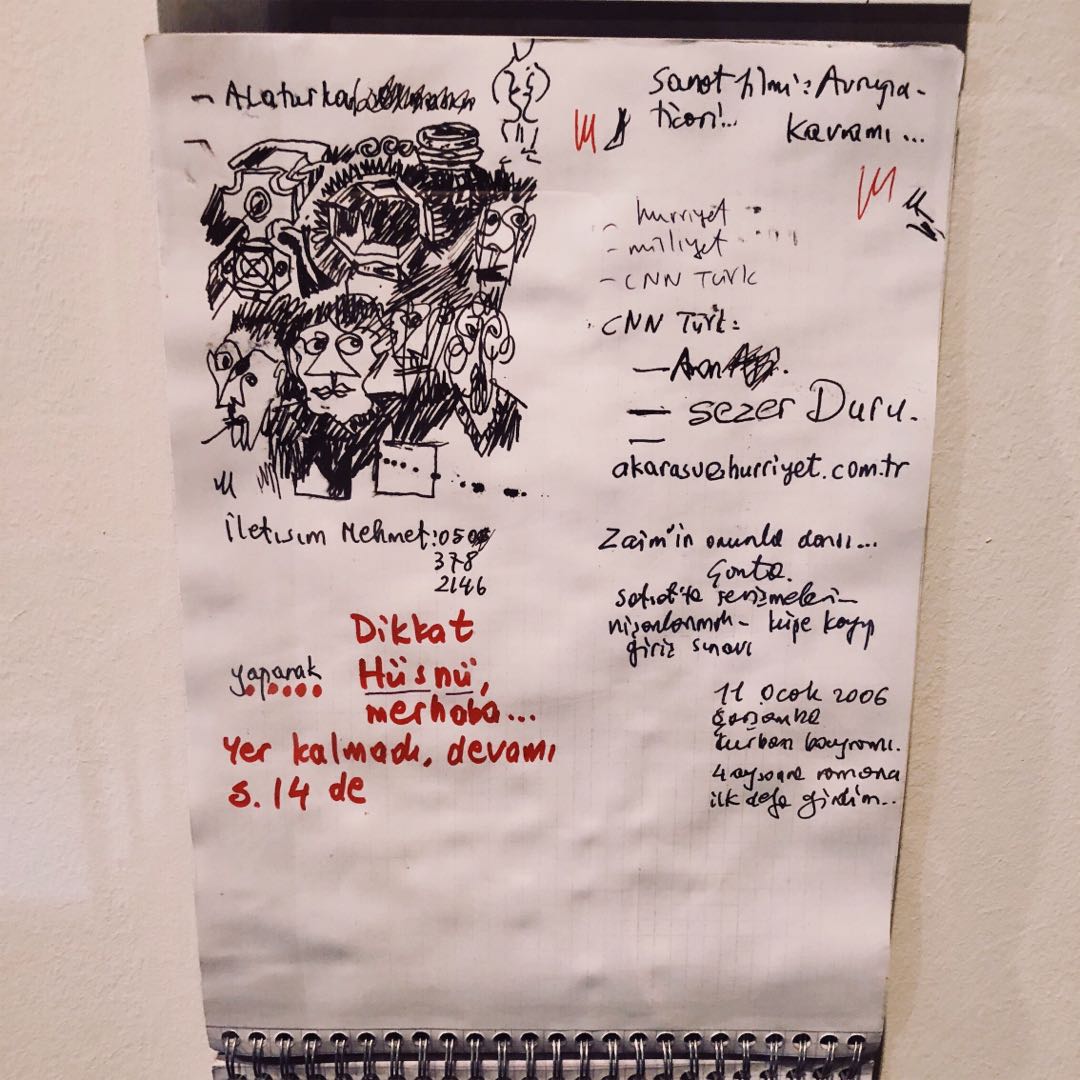 - Alaturka
İletişim Mehmet: 050
378
2146
Dikkat
yaparak Hüsnü,
merhaba...
Yer kalmadı, devamı
s. 14 de
Sanat filmi: Avrupa-
ticari!..
kavramı...
- hurriyet
- milliyet
- CNN Türk
CNN Türk:
— Sezer Duru.
akarasu@hurriyet.com.tr
Zaim'in onunla dansı...
Çanta.
nişanlanmak - küpe kayıp
giriş sınavı
11 Ocak 2006
Çarşamba
Kurban bayramı.
4 ay sonra romana
ilk defa girdim...